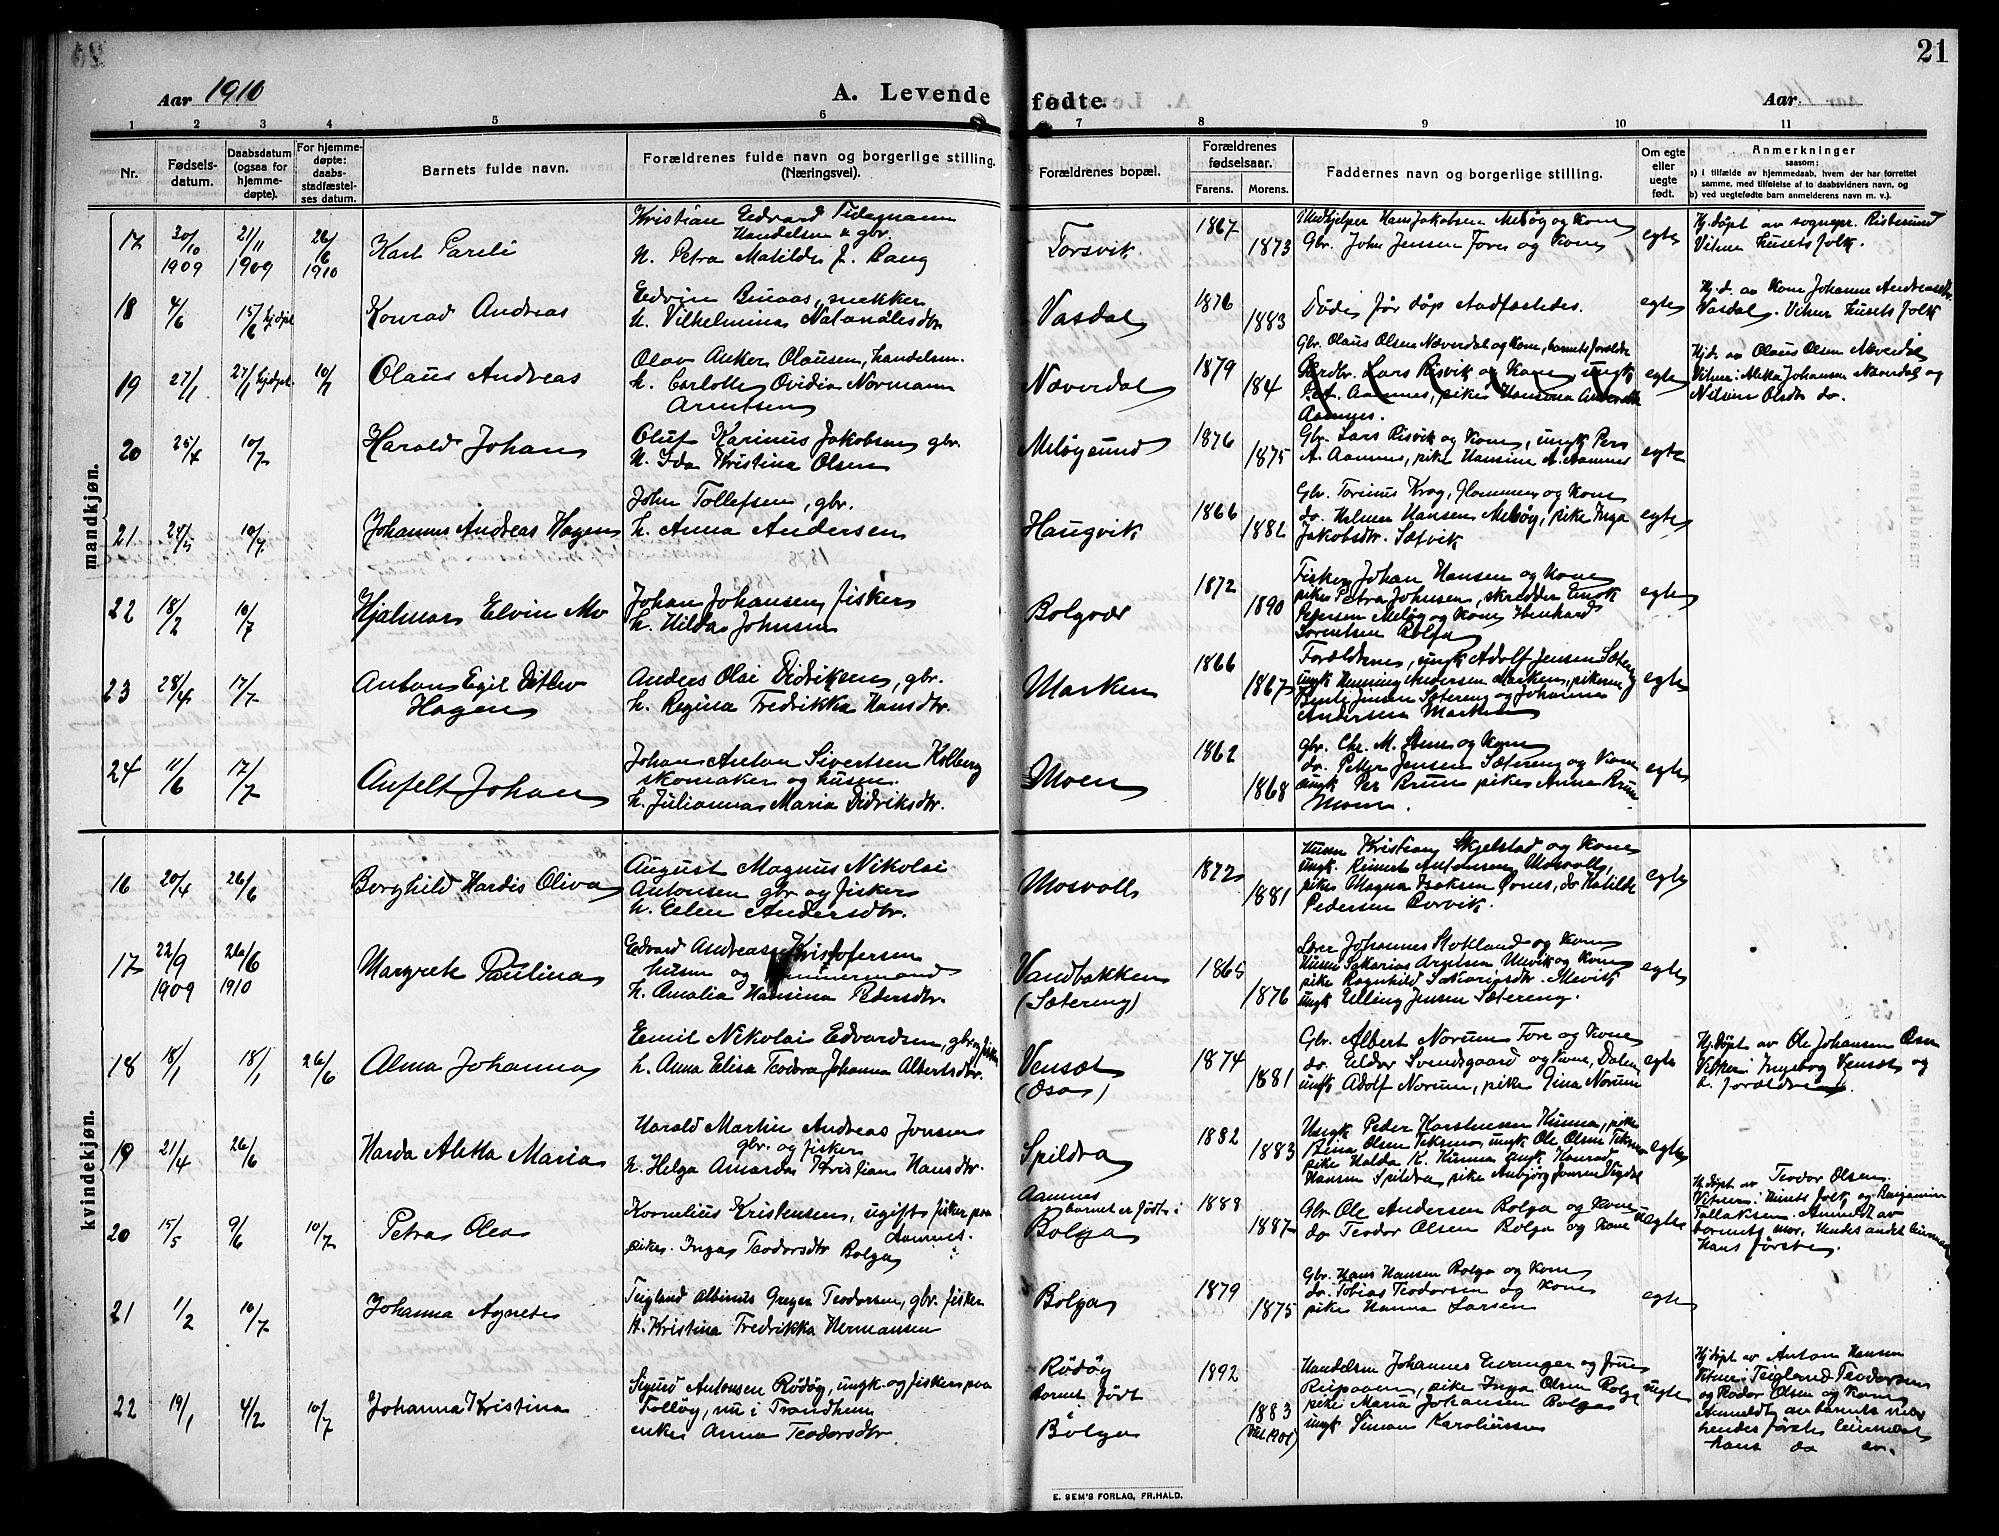 21
Aar 1910
A. Levende fødte.
Aar
1 2 3 4 5 6 7 8 9 10 11
Nr.
Fødselsdatum.
Daabsdatum (ogsaa for hjemmedøpte).
For hjemmedøpte: daabsstadfæstelses datum.
Barnets fulde navn.
Forældrenes fulde navn og borgerlige stilling. (Næringsvei).
Forældrenes bopæl.
Forældrenes fødselsaar.
Farens. Morens.
Faddernes navn og borgerlige stilling.
Om egte eller uegte født.
Anmerkninger
saasom:
a) i tilfælde av hjemmedaab, hvem der har forrettet
samme, med tilføielse af to daabsvidners navn, og
b) ved uegtefødte barn anmelderens navn m. v.).
mandkjøn.
17 20/10 1909 21/11 1909 26/6 1910
Karl Pareli
Kristian Edvard Tidemann
Handelsm & gbr.
H. Petra Matilde J. Bang
Torsvik
1867 1873
Hans Jakobsen Meløy og Kone
Gbr. John Jensen Fore og Kone
egte
Hj.døpt av sognepr. Ristesund
Vitner Husets folk.
18 4/6 15/6 hj.døpt
Konrad Andreas
Edvin Buaas, snekker
H. Vilhelmina Natanälesdtr
Vasdal
1876 1883
Døde før dåp stadfæstedes.
egte
Hj.d. av Kone Johanne Andreasdtr.
Vasdal. Vitner Husets folk
19 27/1 27/1 hj.døpt 10/7
Olaus Andreas
Olav Anker Olausen, handelsm.
h. Carlotte Ovidia Normann
Arntsen
Næverdal
1879 184
Gbr. Olaus Olsen Næverdal og Kone, barnets forældre
Lars Risvik og Kone, ungk
Aamnes, pike Hansina
Aamnes.
egte
Hj.d. av Olaus Olsen Næverdal
Vitner: Aletta Johansen Næverdal og
Olsdtr do.
20 25/4 10/7
Harald Johan
Oluf Karinus Jakobsen gbr.
H. Ida Kristina Olsen
Meløysund
1876 1875
Gbr. Lars Risvik og Kone, ungk Peder
A. Aamnes, pike Hansine A. Aamnes
egte
21 24/5 10/7
Johannes Andreas Hagen
John Tollefsen, gbr.
h. Anna Andersen
Haugvik
1866 1882
Gbr. Torinus Krog, Flommen og Kone
do. Helmer Hansen Meløy, pike Inga
Jakobsdtr. Sætvik
egte
22 18/2 10/7
Hjalmar Elvin Mo
Johan Johansen, fisker
h. Hilda Johnsen
Bolgvær
1872 1890
Fisker Johan Hansen og Kone
pike Petra Johnsen, skredder
Pepersen Meløy og Kone
Sørentsen Bolga
egte
23 28/4 17/7
Anton Egil Ditlev
Hagen
Anders Olai Didriksen, gbr.
h. Regina Fredrikka Hansdtr.
Marken
1866 1867
Forældrene, ungk Adolf Jensen Sætereng
ungk Henning Andersen Marken, pikerne
Jensen Sætereng og Johanna
Andersen Marken
egte
24 11/6 17/7
Anfelt Johan
Johan Anton Sivertsen Kolberg
skomaker og husm.
h. Julianna Maria Didriksdtr.
Moen
1862 1868
gbr. Chr. M. Stene og Kone
do. Petter Jensen Sætereng og Kone
ungk Per Brun pike Anna Brun
Moen.
egte
kvindekjøn.
16 20/4 26/6
Borghild Hardis Oliva
August Magnus Nikolai
Antonsen gbr og fisker
h. Elen Andersdtr.
Mosvoll
1872 1881
Husm Kristian Skjelstad og Kone
ungk. Reinert Antonsen Mosvoll,
pike Magna Isaksen Ørnes, do Matilde
Pedersen Borvik.
egte
17 22/9 1909 26/6 1910
Margrete Paulina
Edvard Andreas Kristofersen
husm og tømmermand
h. Amalia Hansina Pedersdtr.
Vandbakken
(Sætereng)
1865 1876
Lærer Johannes Stokland og Kone
Husm Sakarias Arntsen Mevik og Kone
pike Ragnhild Sakariasdtr. Mevik
ungk Elling Jensen Sætereng.
egte
18 18/1 18/1 26/6
Alma Johanna
Emil Nikolai Edvardsen, gbr og fisker
h. Anna Elisa Teodora Johanna Albertsdtr.
Vensæt
(Øsa)
1874 1881
Gbr. Albert Norum Fore og Kone
do. Eldor Svendsgaard og Kone, Dalen
ungk Adolf Norum, pike Gina Norum
egte
Hj.døpt av Ole Johansen
Ingeborg Vensæt og
h. forældre
19 21/4 26/6
Harda Aletta Maria
Harald Martin Andreas Jensen
gbr. og fisker
h. Helga Amanda Kristian Hansdtr.
Spildra
1882 1883
Ungk Peder Karstensen Kunna, pike
Olsen Teksmo, ungk Ole Olsen
pike Halda K. Kunna ungk Konrad
Hansen Spildra, pike Anbjørg Jensen Vigdal
egte
20 15/5 9/6 10/7
Petra Olea
Kornelius Kristensen, ugift fisker paa
Aamnes.
pike Inga Teodorsdtr Bolga
Aamnes
barnet er født i
Bolga
1888 1887
Gbr. Ole Andersen Bolga og Kone
do Teodor Olsen Bolga og Kone
uegte
Hj.døpt av Teodor Olsen.
Vitner: Husets folk og Benjamin
Tollaksen. Anmeldt av
barnets mor. Hendes andet leiermaal
Hans første.
21 11/2 10/7
Johanna Agnete
Teigland Albinus Greger Teodorsen, gbr. fisker
H. Kristina Fredrikka Hermansen
Bolga
1879 1875
Gbr. Hans Hansen Bolga og Kone
do. Tobias Teodorsen og Kone
pike Hanna Larsen
egte
22 19/1 4/2 10/7
Johanna Kristina
Sigurd Antonsen Rødøy, ungk. og fisker paa
Rødøy, nu i Trondhjem
enke Anna Teodorsdtr.
Rødøy
Barnet født
Bolga
1892 1883
Handelsm Johannes Enranger og frue
Reipaaen, pike Inga Olsen Bolga
pike Maria Johansen Bolga
ungk Simon Karoliussen
uegte
Hj.døpt av Anton Hansen
Vitner: Teigland Teodorsen
og Peder Olsen og Kone
Anmeldt av barnets mor
hendes første leiermaal
hans do do.
E. SEM'S FORLAG, FR.HALD.